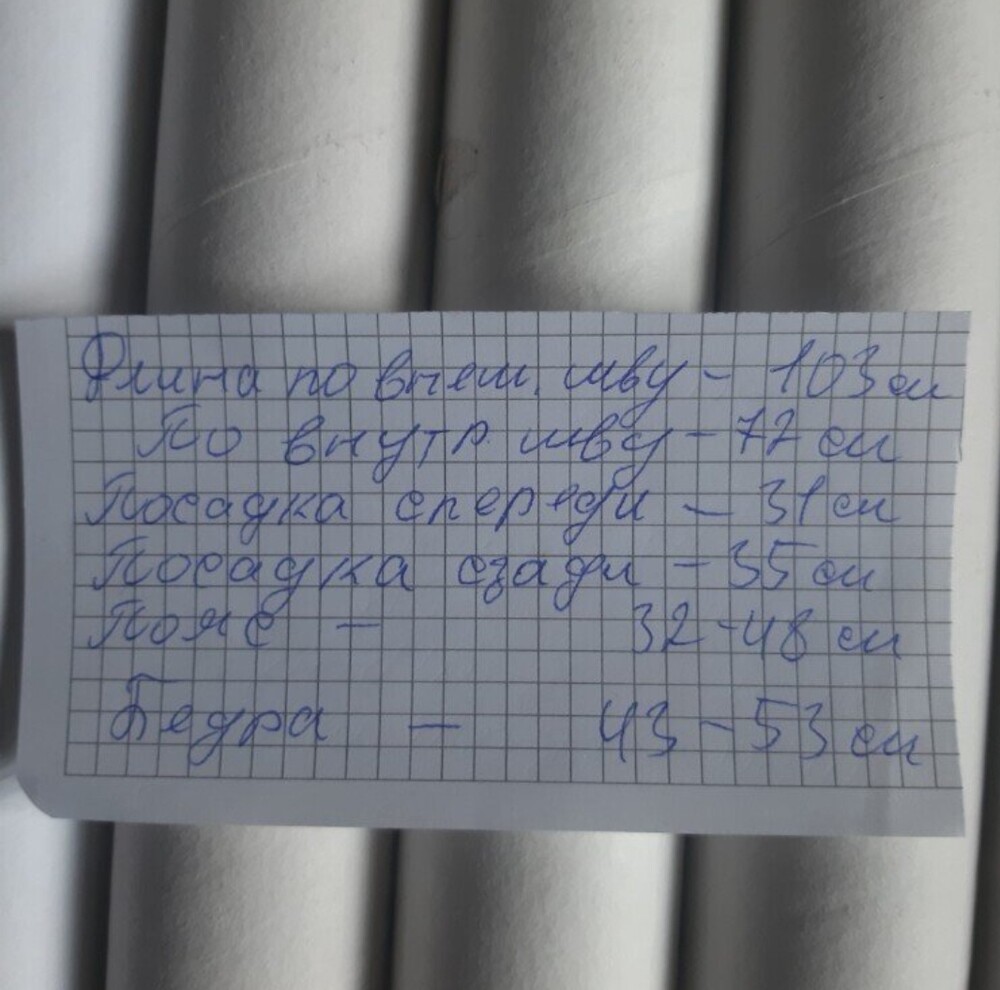 Длина по внеш. шву - 103 см
По внутр. шву - 72 см
Посадка спереди - 31 см
Посадка сзади - 35 см
Пояс - 32-48 см
Бедра - 43-53 см